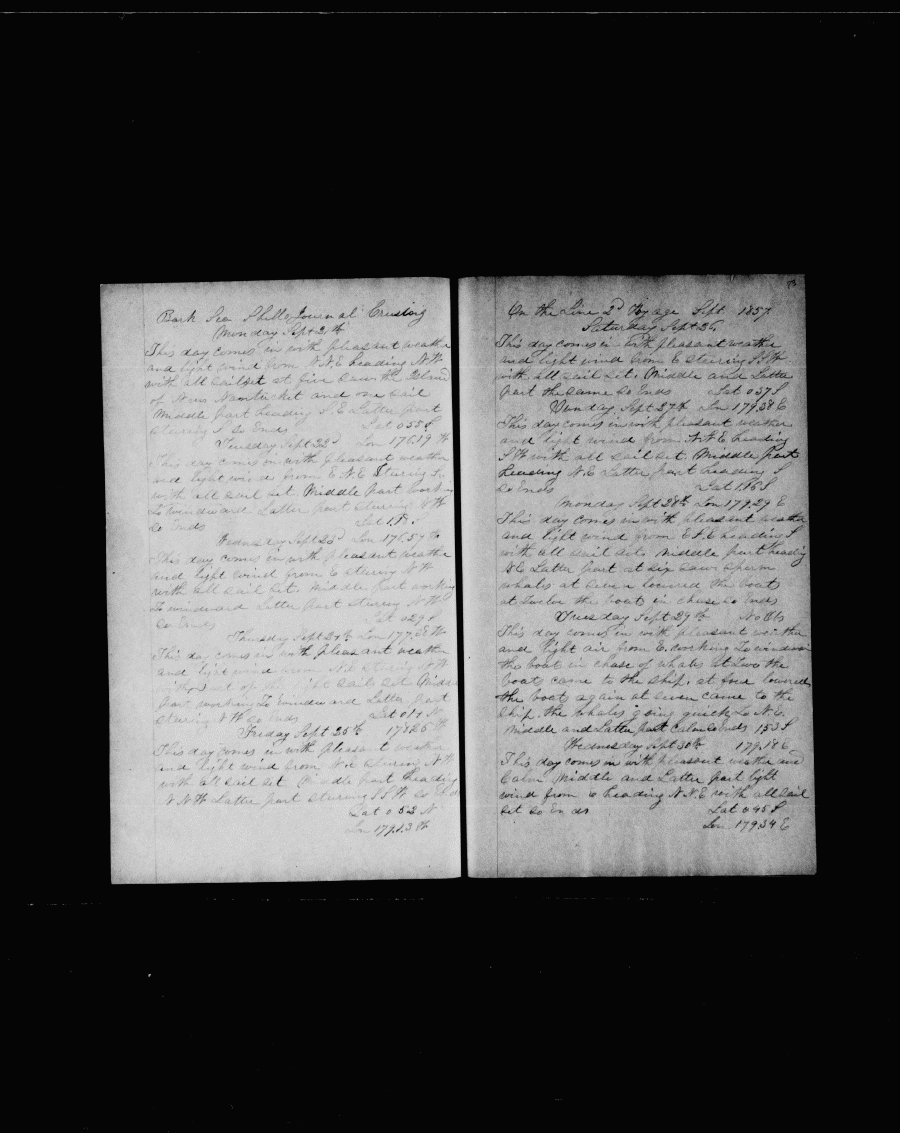 Bark Sea Shells Journal Cruising
Monday Sept 21th
This day comes in with pleasant weather
and light wind from N.N.E heading N.W.
with all sail set at five saw the Island
of New Nantucket and one sail
Middle part heading S.E Latter part
steering S So Ends Lat 0 55 S
Tuesday Sept 22d Lon 176.19 W
This day comes in with pleasant weather
and light wind from E.N.E Stering
with all sail set Middle part working
To windward Latter part stering W
So Ends Lat 1.18 S
Wednesday Sept 23d Lon 176.57 W
This day comes in with pleasant weather
and light wind from E stering N W
with all sail set. Middle part working
To windward Latter part stering N.W
So Ends Lat 0 29 S
Thursday Sept 24th Lon 177. W
This day comes in with pleasant weather
and light wind from N.E stering N W
sail set Middle
part working To windward Latter part
stering N W So Ends Lat 0 N
Friday Sept 25th 178 W
This day comes in with pleasant weather
and light wind from N.E stering N W
with all sail set Middle part heading
N.N.W. Latter part stering S S W So Ends
Lat 0 52 N
Lon 179.13 W
73
On the Line 2d Voyage Sept 1857
Saturday Sept 26
This day comes in with pleasant weather
and light wind from E stering S S W
with all sail set. Middle and Latter
part the same So Ends Lat 0 37 S
Sunday Sept 27th Lon 179.38 E
This day comes in with pleasant weather
and light wind from N.N.E heading
S W with all sail set Middle part
heading N.E Latter part heading S
So Ends Lat 1.16 S
Monday Sept 28th Lon 179.29 E
This day comes in with pleasant weather
and light wind from E.S.E heading S
with all sail set Middle part heading
N.E Latter part at six saw sperm
whales at seven lowered the boats
at twelve the boats in chase So Ends
Tuesday Sept 29th No Obs
This day comes in with pleasant weather
and light air from E. working To windward
the boats in chase of whales at two the
boats came to the ship. at four lowered
the boats again at seven came to the
ship. the whales going quick To N.E.
Middle and Latter part Calm So Ends 1 53 S
Wednesday Sept 30th 179.18 E
This day comes in with pleasant weather and
Calm Middle and Latter part light
wind from E heading N.N.E with all sail
set So Ends Lat 0 45 S
Lon 179.34 E